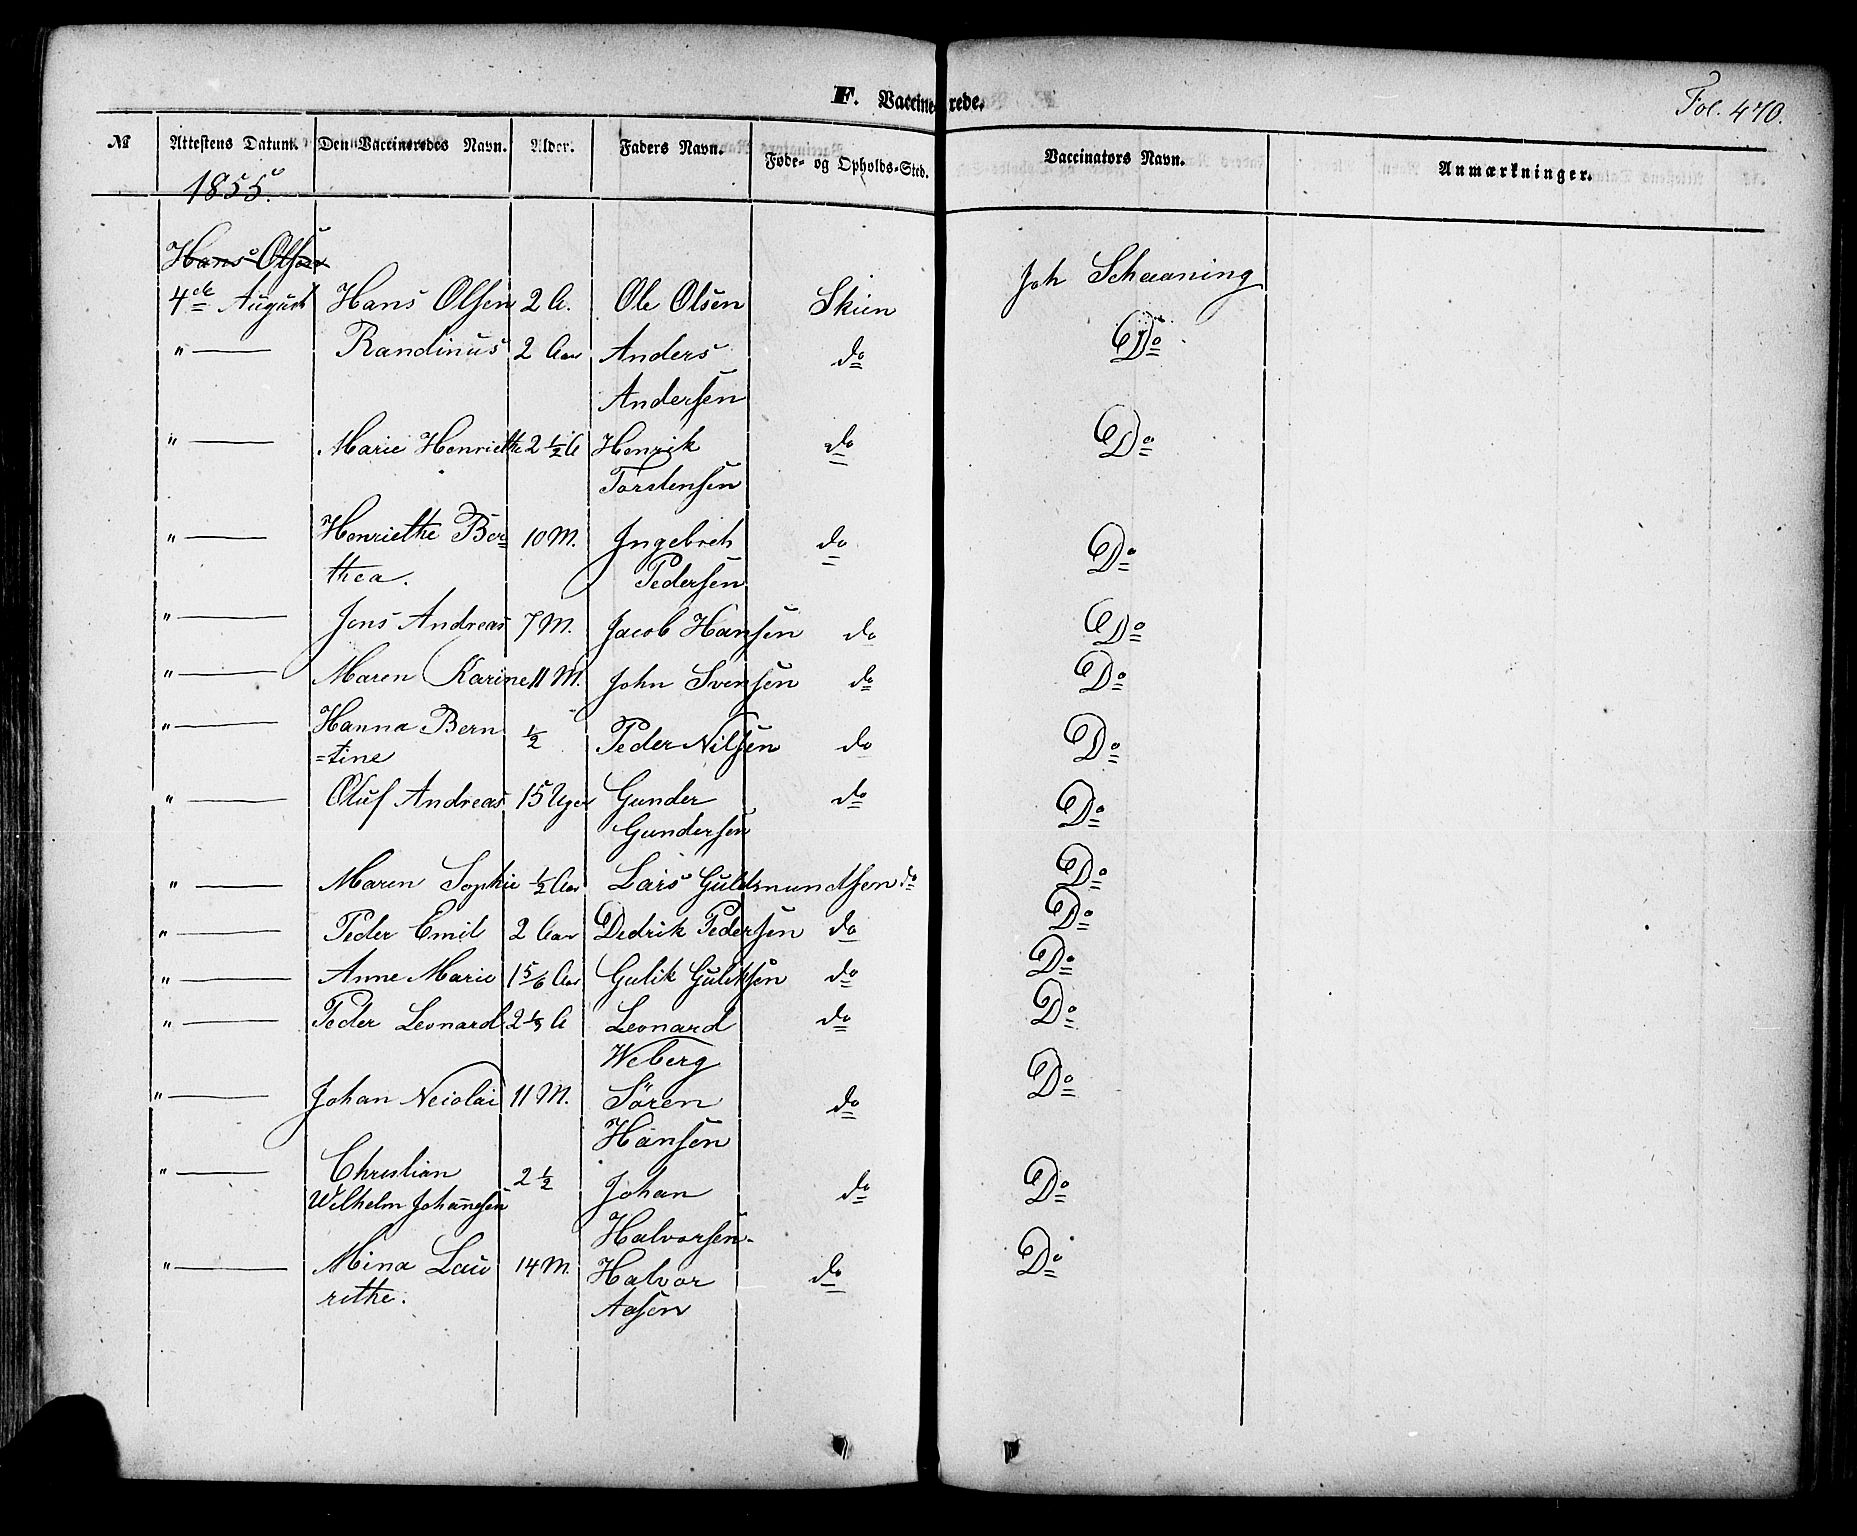 F. Vaccinerede.
Fol. 470.
№ Attestens Datum. Den Vaccineredes Navn. Alder. Faders Navn. Føde- og Opholds-Sted. Vaccinators Navn. Anmærkninger.
1855.
Hans Olsen
4de August Hans Olsen 2 A. Ole Olsen Skien Joh Schaaning
" — Randinus 2 Aar Anders do Do
Andersen
" — Marie Henriethe 2 1/2 A Henrik do Do
Torstensen
" — Henriethe Ber= 10 M. Ingebreth do Do
thea. Pedersen
" — Jens Andreas 7 M. Jacob Hansen do Do
" — Maren Karine 11 M. John Svensen do Do
" — Hanna Bern 1/2 Peder Nilsen do Do
=tine
" — Oluf Andreas 15 Uger Gunder do Do
Gundersen
" — Maren Sophie 1/2 Aar Lars Guldsmundtsen do Do
" — Peder Emil 2 Aar Dedrik Pedersen do Do
" — Anne Marie 1 5/6 Aar Gulik Guliksen do Do
" — Peder Leonard 2 1/3 A Leonard do Do
Weberg
" — Johan Neiolai 11 M. Sören do Do
Hansen
" — Christian 2 1/2 Johan do Do
Wilhelm Johannesen Halvorsen.
" — Mina Lau 14 M. Halvor do Do
rethe. Aasen